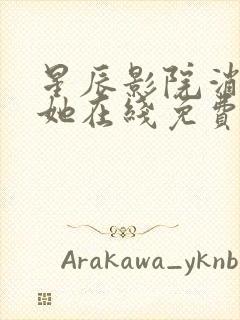 星辰影院消
她在线免費
Arakawa_yknb